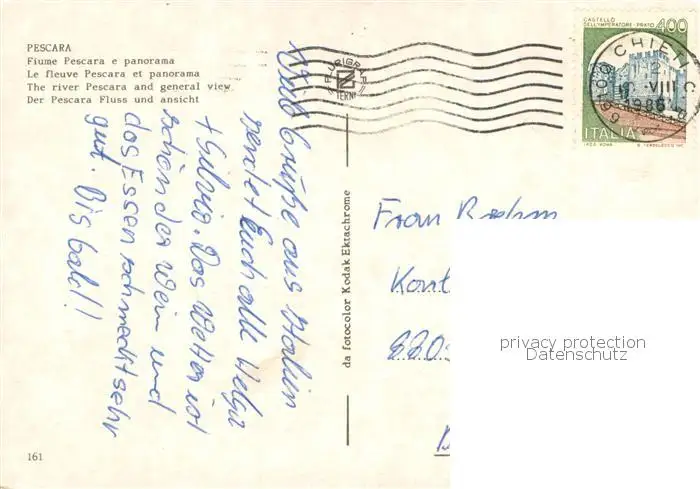 PESCARA
Fiume Pescara e panorama
Le fleuve Pescara et panorama
The river Pescara and general view
Der Pescara Fluss und ansicht
CASTELLO
DELL'IMPERATORE - PRATO 400
CHIETI
VIII
1986
ITALIA
Viele Grüße aus Italien
sendet Euch alle Helga
+ Silvia. Das Wetter ist
schön der Wein und
das Essen schmeckt sehr
gut. Bis bald!
da fotocolor Kodak Ektachrome
Frau
privacy protection
Datenschutz
161